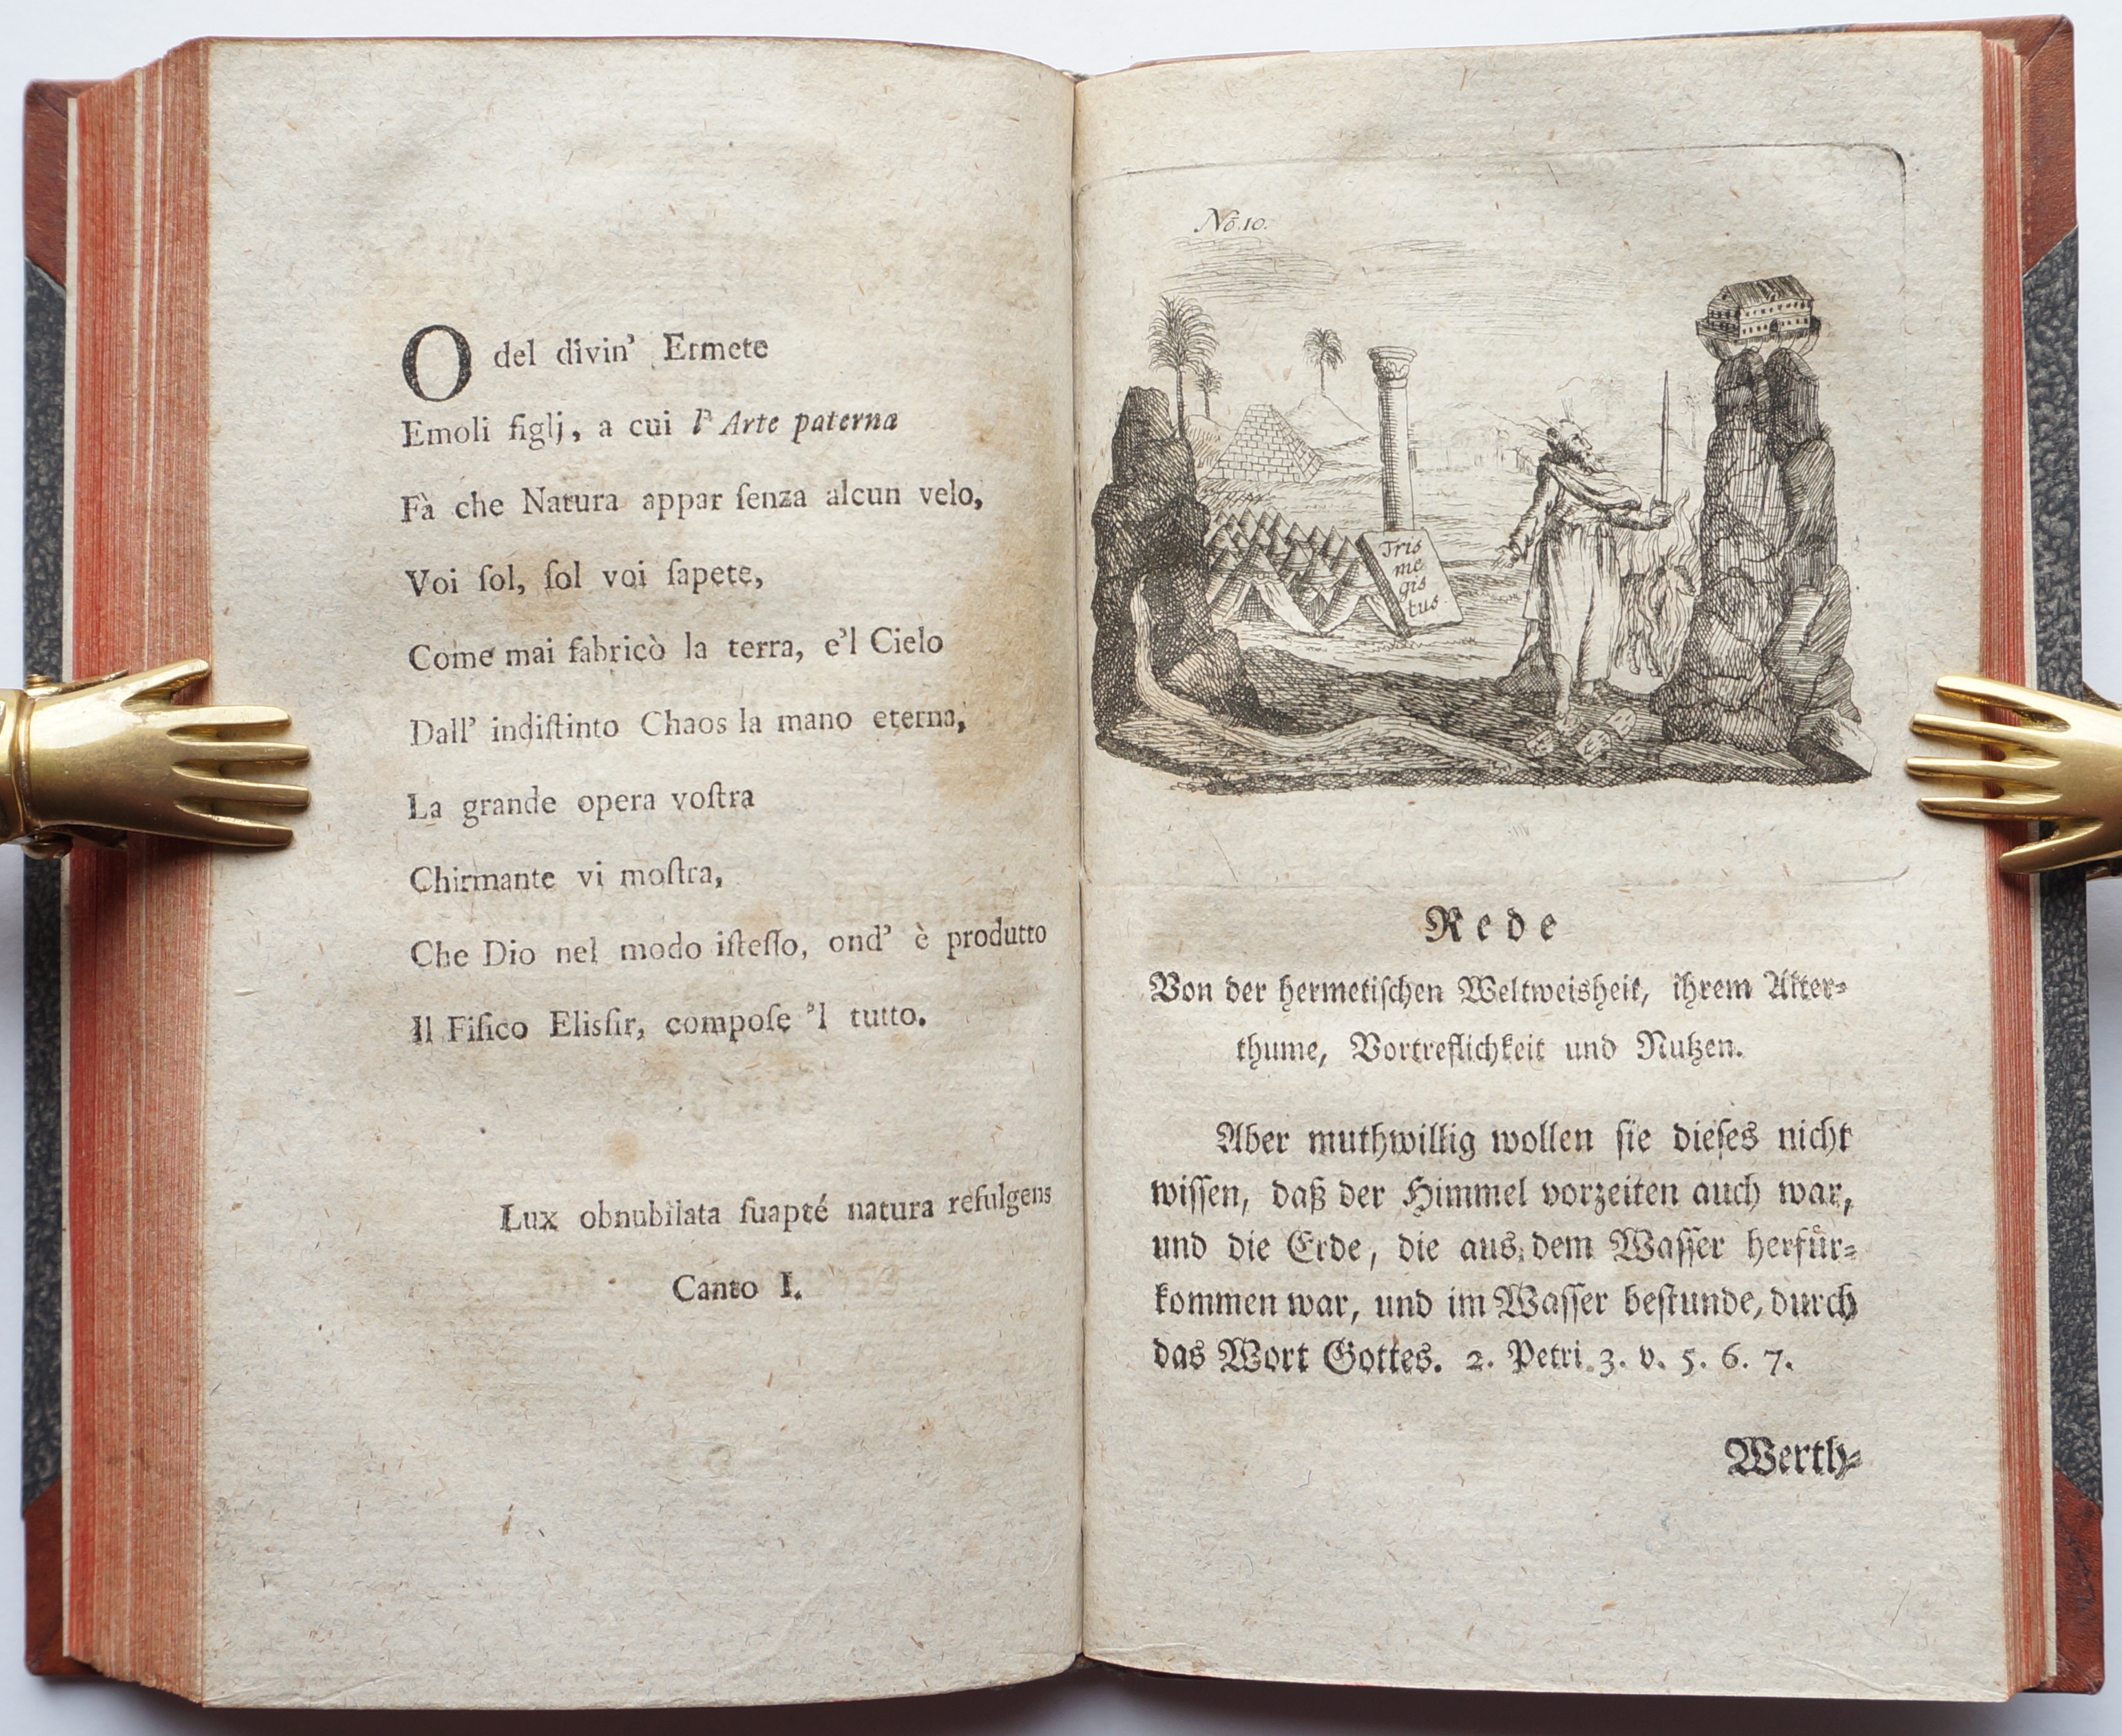 O del divin' Ermete
Emoli figlj, a cui l'Arte paterna
Fà che Natura appar ſenza alcun velo,
Voi ſol, ſol voi ſapete,
Come mai fabricò la terra, e'l Cielo
Dall' indiſtinto Chaos la mano eterna,
La grande opera voſtra
Chirmante vi moſtra,
Che Dio nel modo iſteſſo, ond' è produtto
Il Fiſico Elisſir, compoſe 'l tutto.
Lux obnubilata ſuapté natura refulgens
Canto I.
No. 10.
Tris
me
gis
tus.
Rede
Von der hermetiſchen Weltweisheit, ihrem Alter-
thume, Vortreflichkeit und Nutzen.
Aber muthwillig wollen ſie dieſes nicht
wiſſen, daß der Himmel vorzeiten auch war,
und die Erde, die aus dem Waſſer herfür-
kommen war, und im Waſſer beſtunde, durch
das Wort Gottes. 2. Petri. 3. v. 5. 6. 7.
Werth-